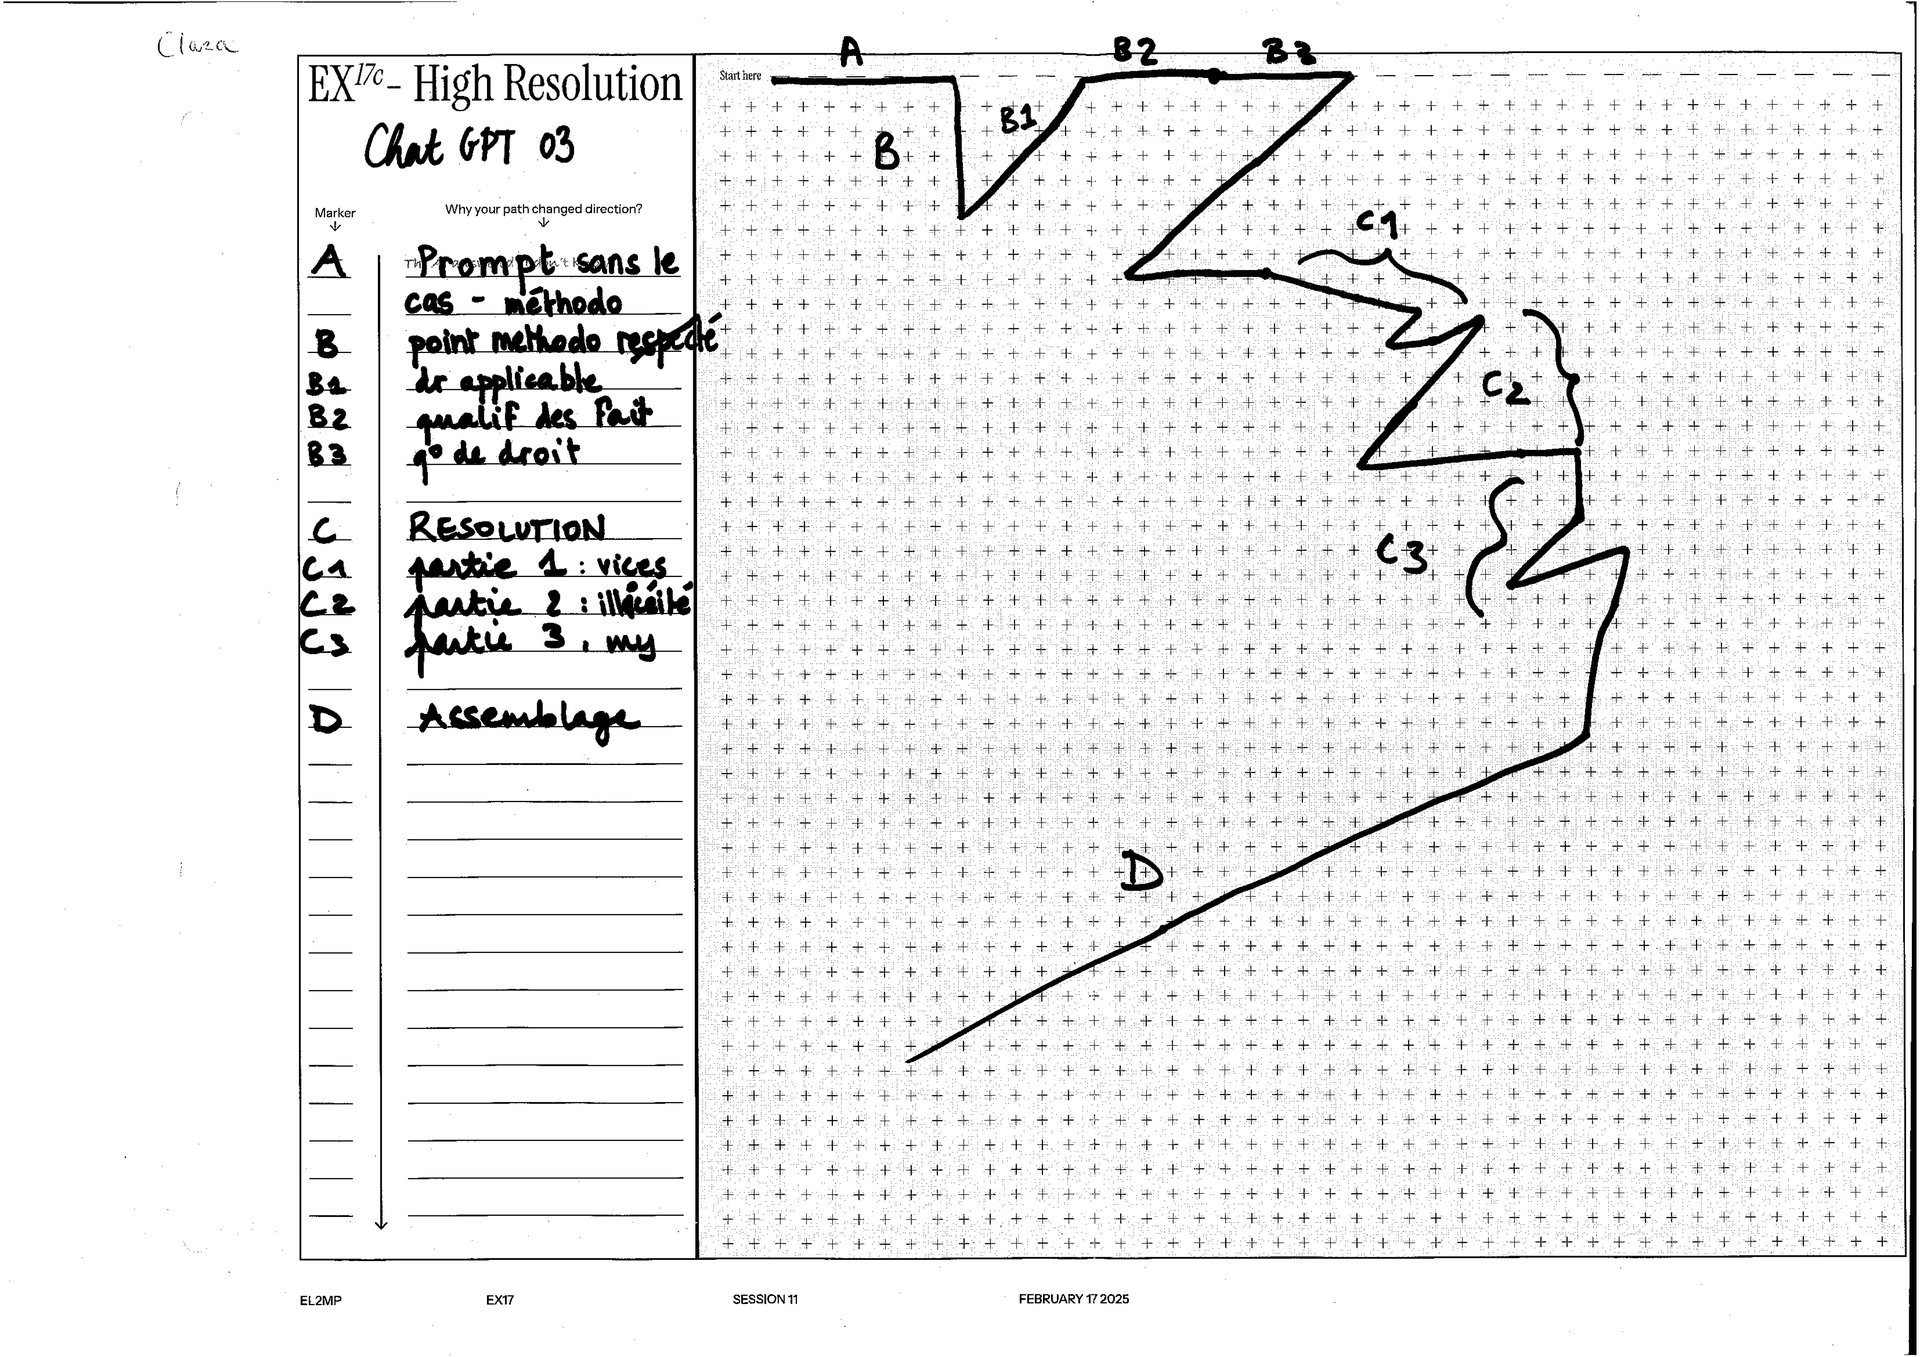 Clara
EX17c - High Resolution
Chat GPT 03
Marker
Why your path changed direction?
A Prompt sans le
cas - méthodo
B point methodo respecté
B1 dr applicable
B2 qualif des fait
B3 q° de droit
C RESOLUTION
C1 partie 1 : vices
C2 partie 2 : illicéité
C3 partie 3 :
D Assemblage
Start here
A
B2
B3
B
B1
C1
C2
C3
D
EL2MP
EX17
SESSION 11
FEBRUARY 17 2025